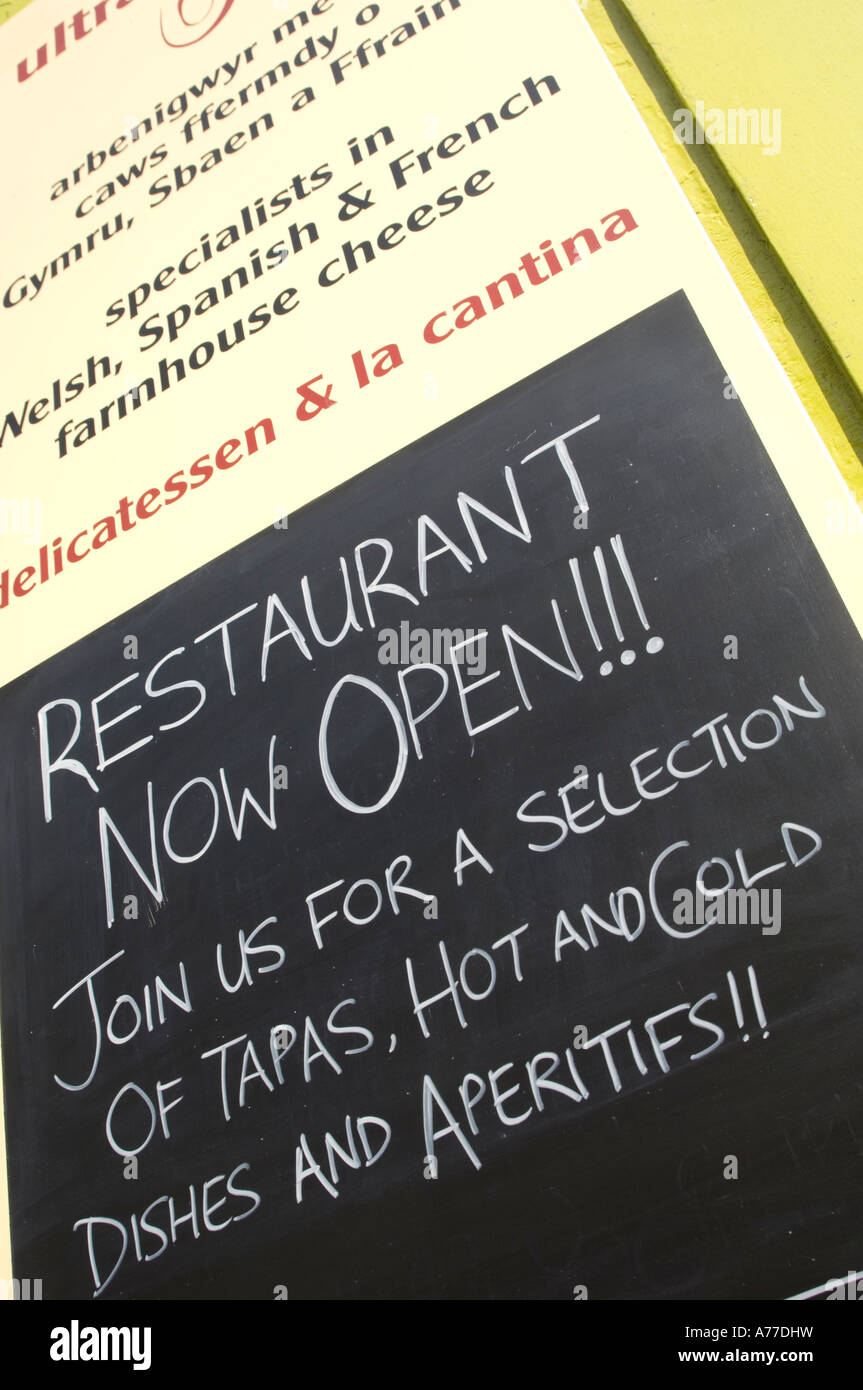 ultra
arbenigwyr me
caws ffermdy o
Gymru, Sbaen a Ffrain
specialists in
Welsh, Spanish & French
farmhouse cheese
delicatessen & la cantina
RESTAURANT
NOW OPEN!!!
JOIN US FOR A SELECTION
OF TAPAS, HOT AND COLD
DISHES AND APERITIFS!!
alamy
alamy stock photo
A77DHW
www.alamy.com